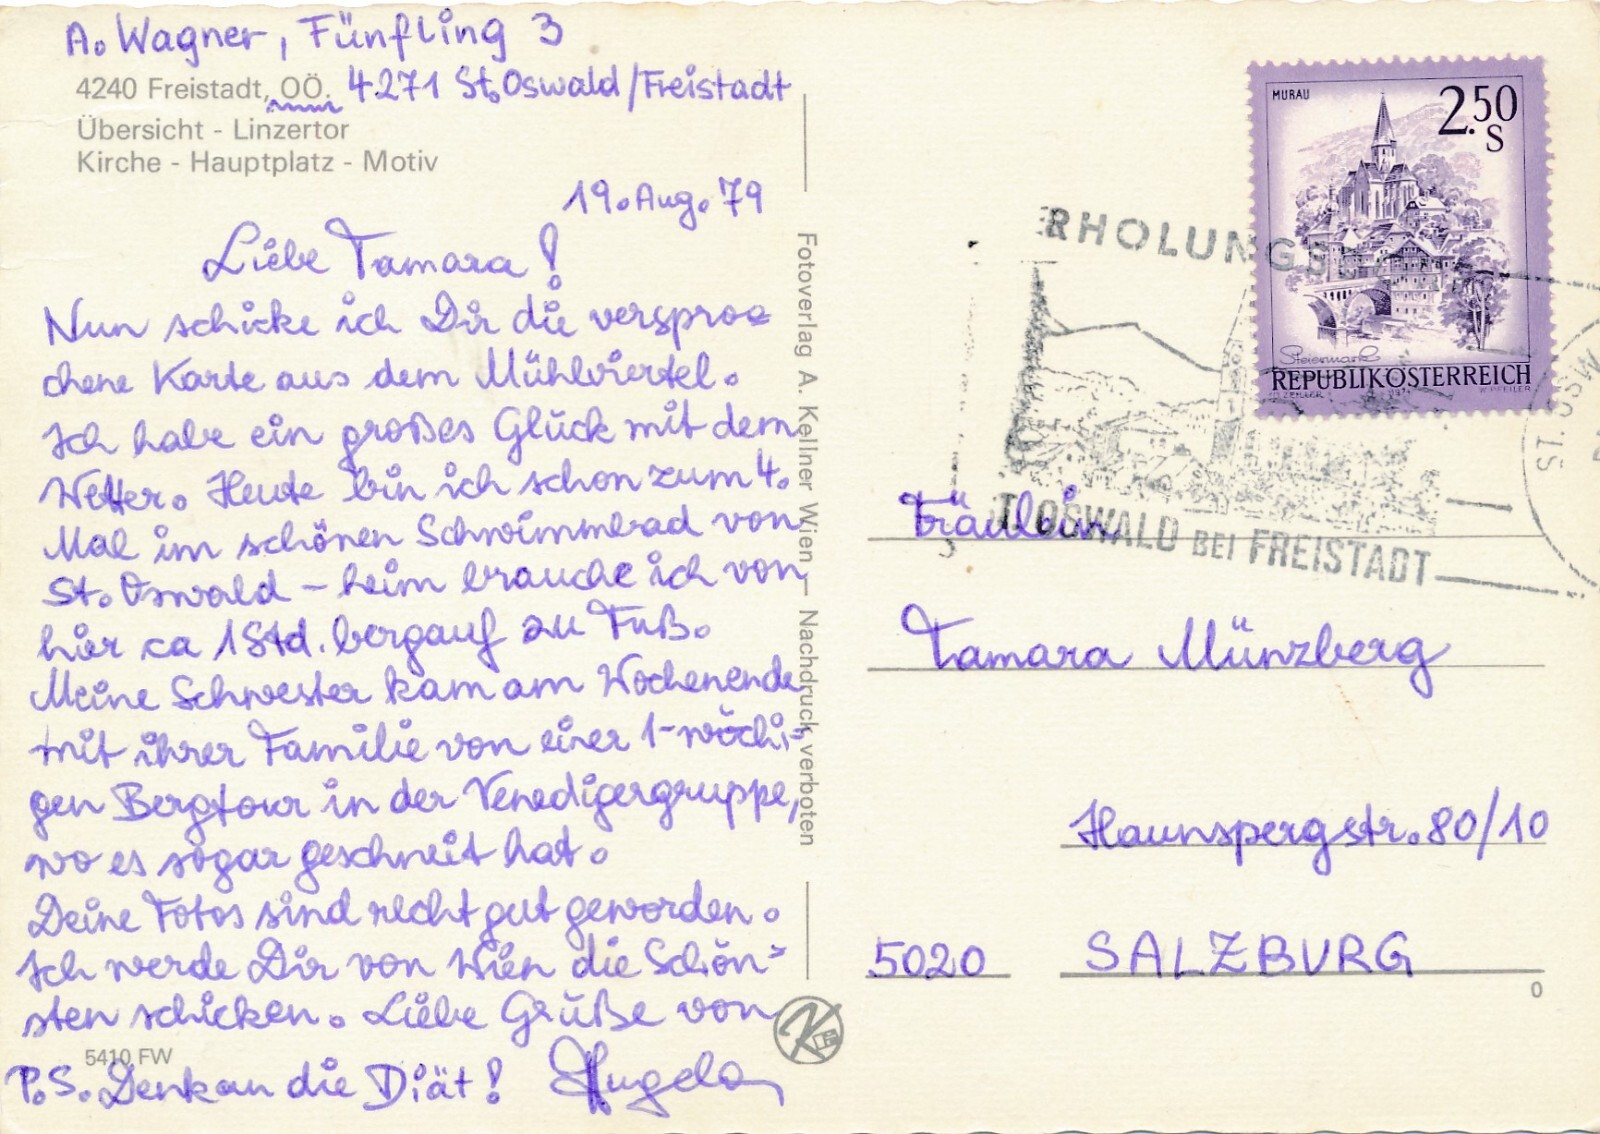 A. Wagner, Fünfling 3
4240 Freistadt, OÖ. 4271 St. Oswald/Freistadt
Übersicht - Linzertor
Kirche - Hauptplatz - Motiv
19. Aug. 79
Liebe Tamara!
Nun schicke ich Dir die verspro=
chene Karte aus dem Mühlviertel.
Ich habe ein großes Glück mit dem
Wetter. Heute bin ich schon zum 4.
Mal im schönen Schwimmbad von
St. Oswald – heim brauche ich von
hier ca 1 Std. bergauf zu Fuß.
Meine Schwester kam am Wochenende
mit ihrer Familie von einer 1-wöchi=
gen Bergtour in der Venedigergruppe,
wo es sogar geschneit hat.
Deine Fotos sind recht gut geworden.
Ich werde Dir von Wien die Schön=
sten schicken. Liebe Grüße von
Angela
P.S. Denk an die Diät!
5410 FW
Fotoverlag A. Kellner Wien – Nachdruck verboten
K
MURAU
2.50
S
Steiermark
REPUBLIK ÖSTERREICH
O. ZEILLER
W. PFEILER
ERHOLUNGS
T. OSWALD BEI FREISTADT
ST. OSW
Fräulein
Tamara Münzberg
Haunspergstr. 80/10
5020 SALZBURG
0